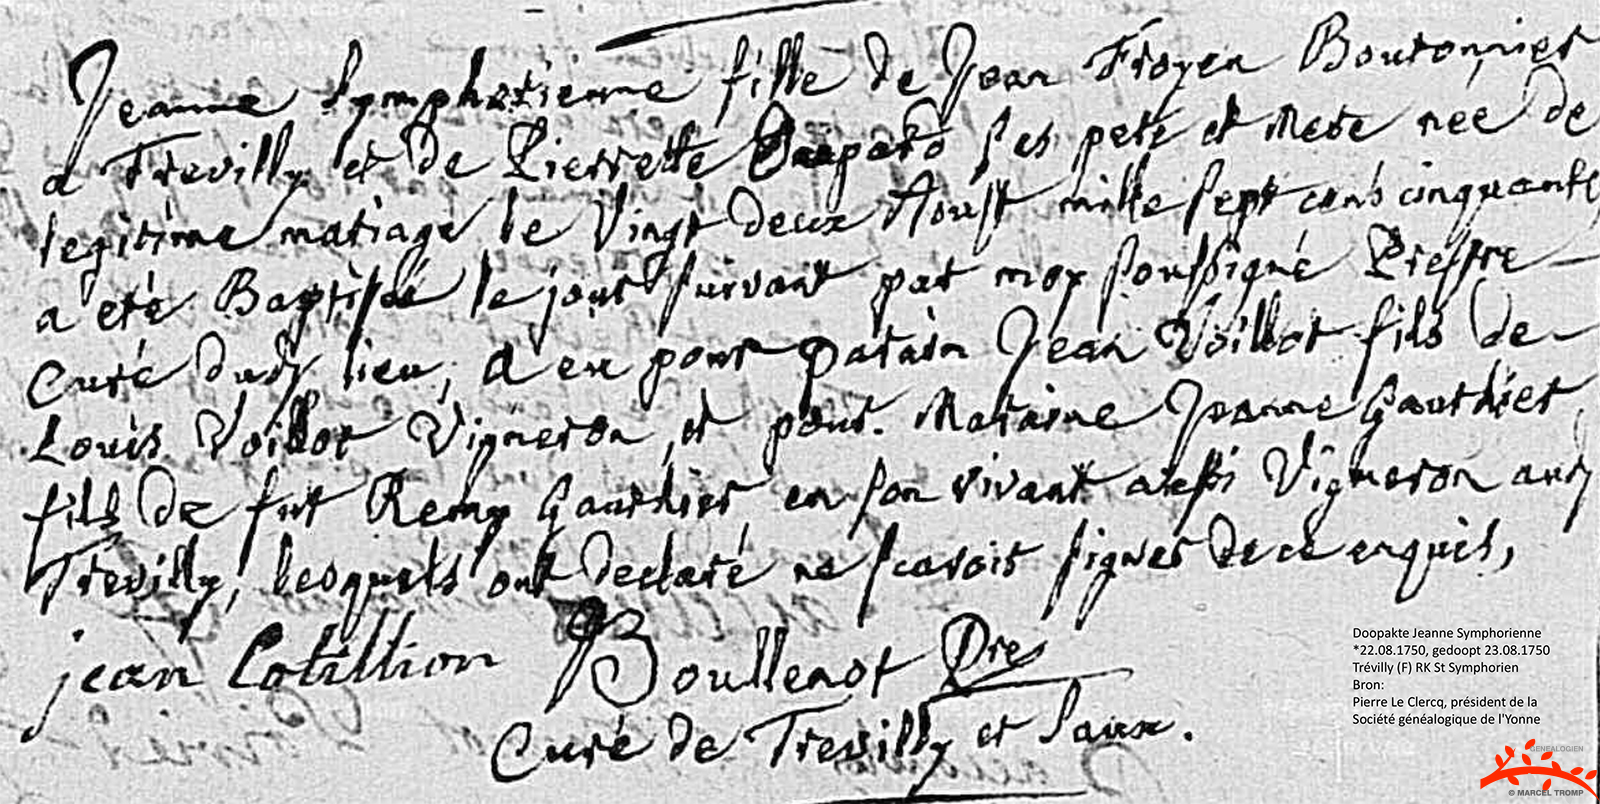 Jeanne Symphorienne fille de Jean Froyen Boutonnier
a Trevilly et de Pierrette ses pere et Mere neé de
legitime mariage le Vingt deux Aoust mille sept cens cinquante
a eté Baptisée le jour suivant par moy soussigné Prestre
Curé dudt lieu, a eu pour parain Jean Voillot fils de
Louis Voillot Vigneron, et pour Maraine Jeanne Gauthier
fils de fut Remy Gauthier en son vivant aussi Vigneron audt
Trevilly, lesquels ont declaré ne scavoir signer de ce enquis,
jean Cotillion Boullenot Pre
Curé de Trevilly et Saux.
Doopakte Jeanne Symphorienne
*22.08.1750, gedoopt 23.08.1750
Trévilly (F) RK St Symphorien
Bron:
Pierre Le Clercq, président de la
Société généalogique de l'Yonne
GENEALOGIEN
© MARCEL TROMP